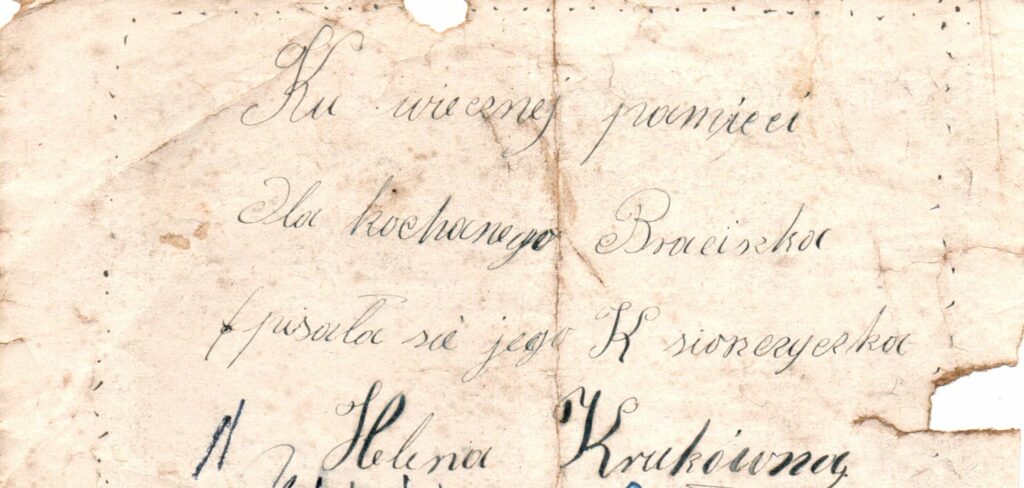 Ku wiecznej pamięci
Dla kochanego Braciszka
pisała sie jego
Helena Krukówna